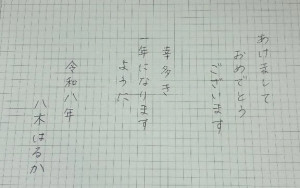 あけまして
おめでとう
ございます
幸多き
一年になります
ように
令和八年
八木はるか